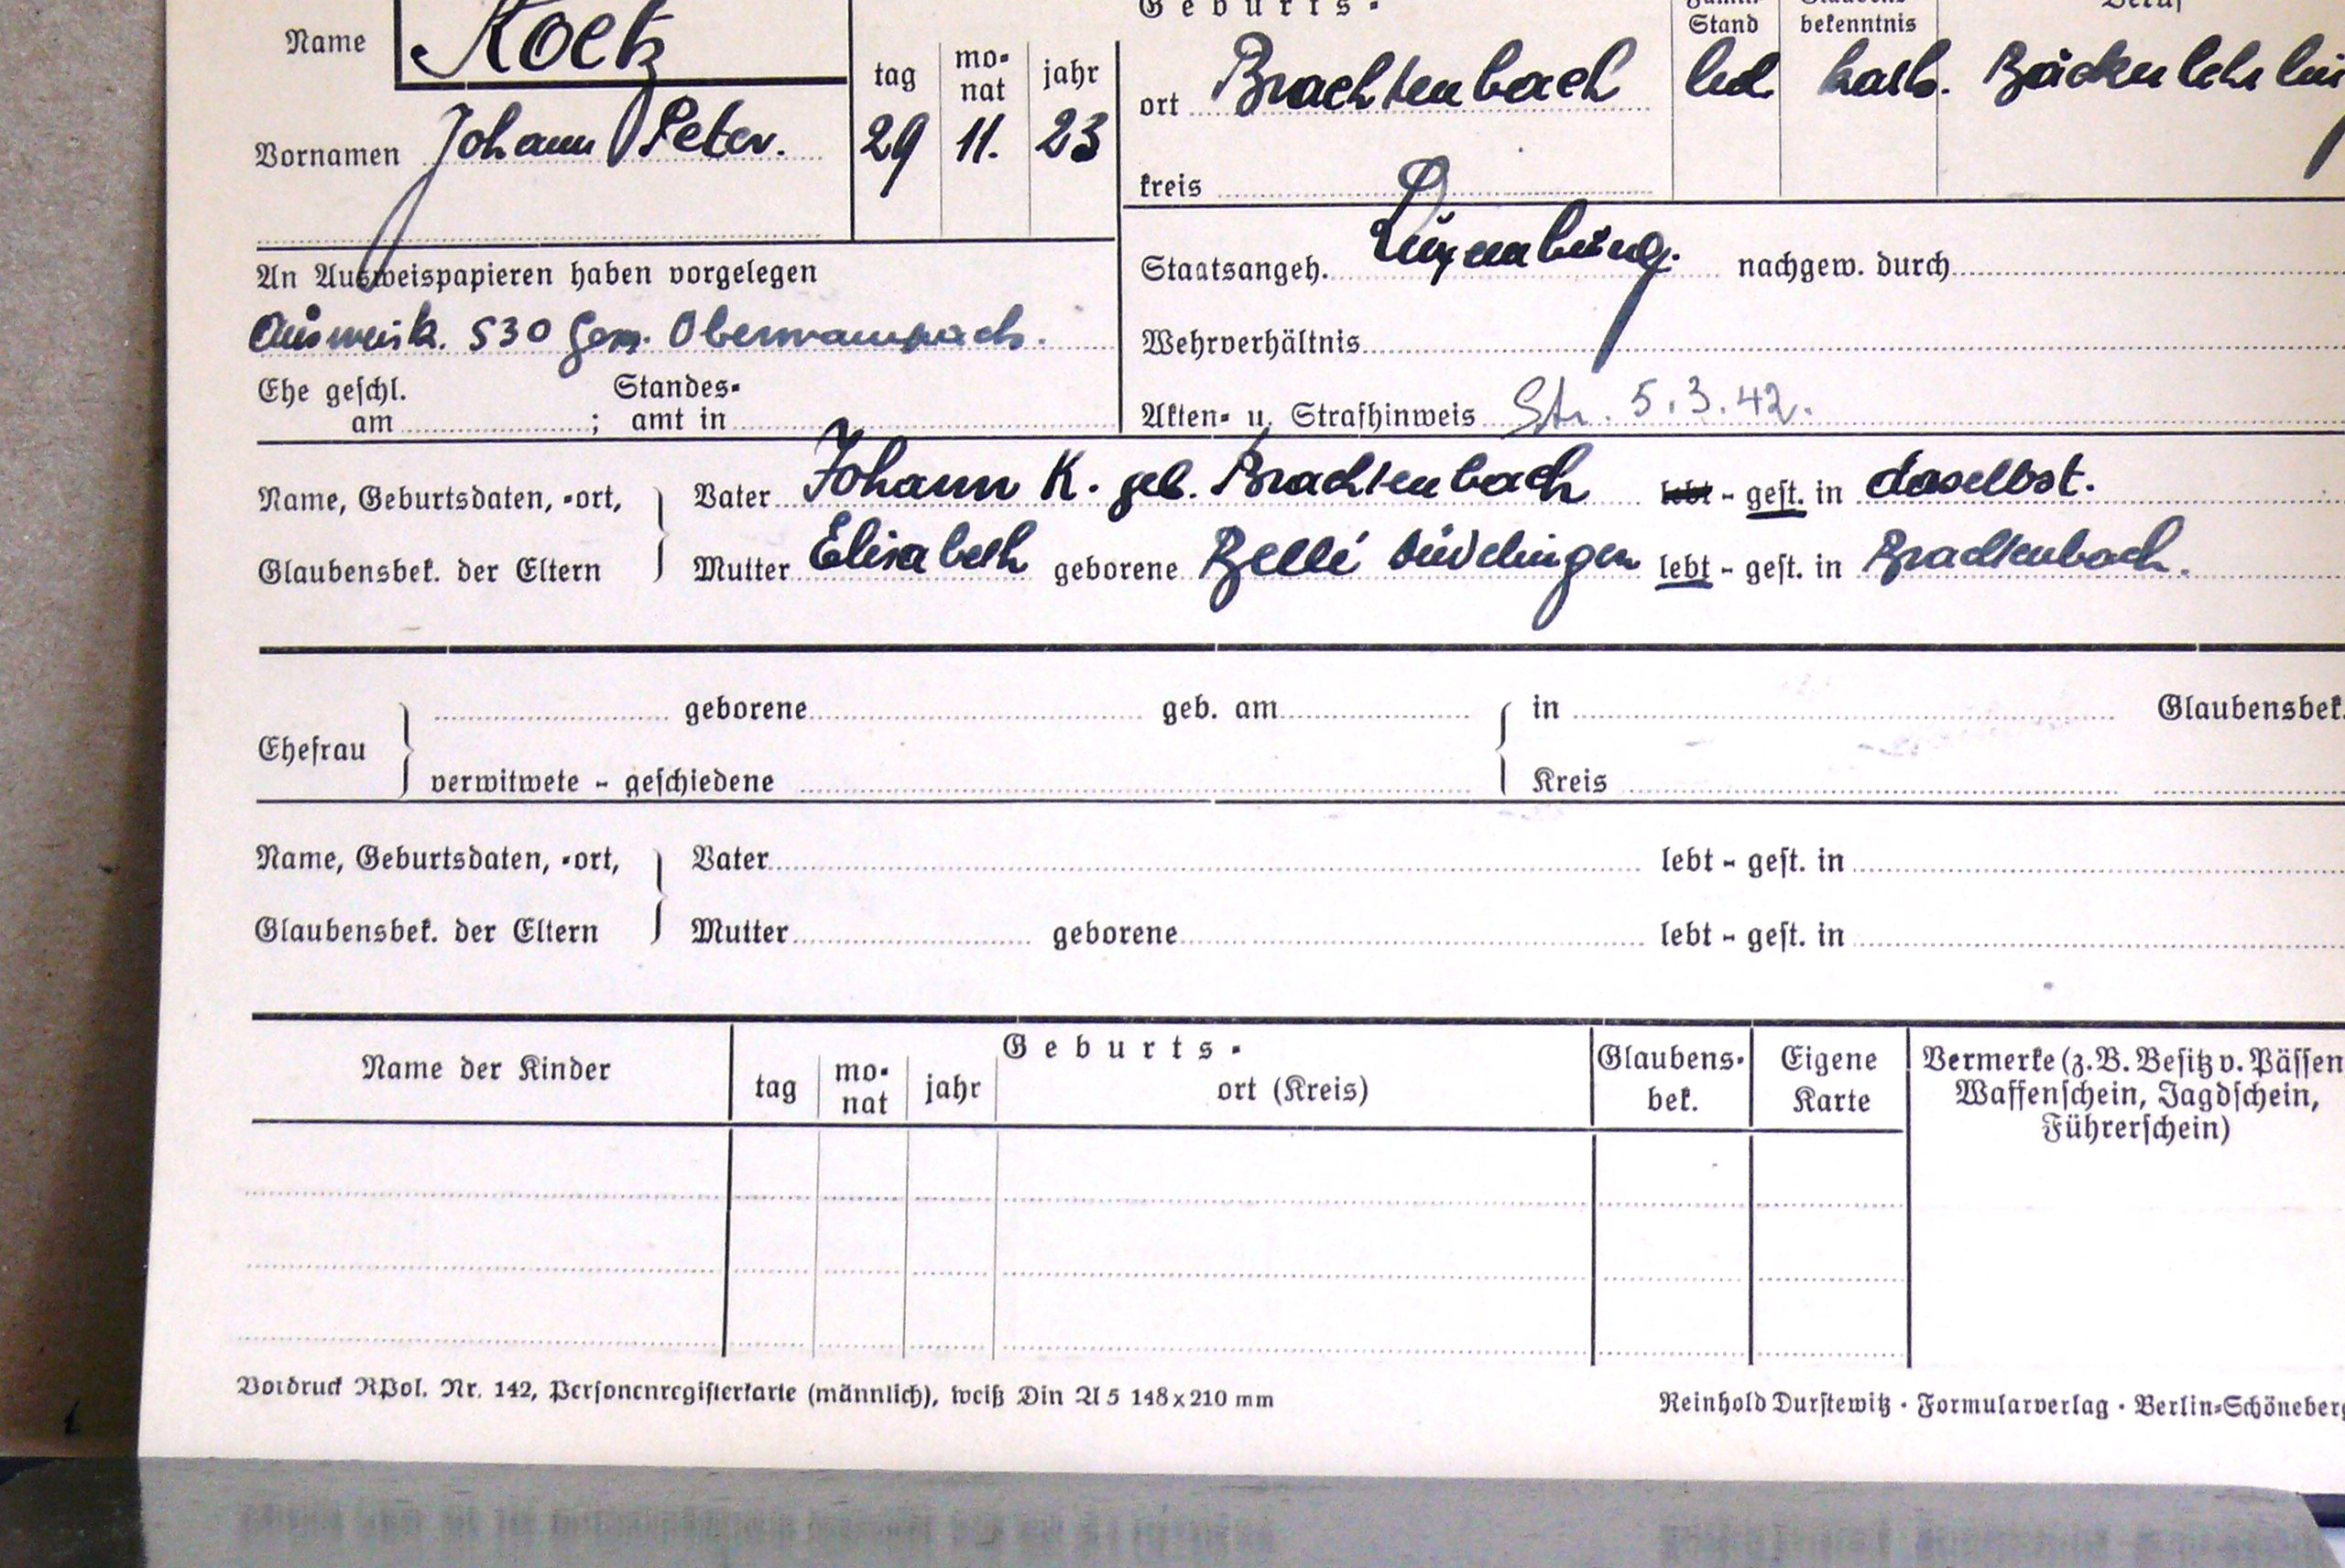 Geburts-
Name Koetz
Stand bekenntnis Beruf
tag monat jahr
ort Brachtenbach led kath. Bäckerlehrling
Vornamen Johann Peter. 29 11. 23
kreis
Staatsangeh. Luxemburg. nachgew. durch
An Ausweispapieren haben vorgelegen
Ausweisk. 530 Gem. Oberwampach.
Wehrverhältnis
Ehe geschl. am ; Standesamt in
Akten- u. Strafhinweis Str. 5.3.42.
Name, Geburtsdaten, -ort, Vater Johann K. geb. Brachtenbach lebt - gest. in daselbst.
Glaubensbek. der Eltern Mutter Elisabeth geborene lebt - gest. in Brachtenbach.
Ehefrau
geborene geb. am in Glaubensbek.
verwitwete - geschiedene Kreis
Name, Geburtsdaten, -ort, Vater lebt - gest. in
Glaubensbek. der Eltern Mutter geborene lebt - gest. in
Name der Kinder
Geburts-
tag monat jahr ort (Kreis)
Glaubens-
bek.
Eigene
Karte
Vermerke (z.B. Besitz v. Pässen
Waffenschein, Jagdschein,
Führerschein)
Vordruck RPol. Nr. 142, Personenregisterkarte (männlich), weiß Din A 5 148x210 mm
Reinhold Durstewitz · Formularverlag · Berlin-Schöneberg